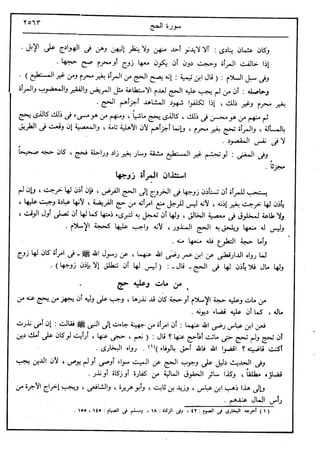 سورة الحج ٢٥٦٣
وكان عثمان ينادى : ألا لا يدنو أحد منهن ولا ينظر إليهن وهن فى الهوادج على الإبل .
إذا خالفت المرأة وحجت دون أن يكون معها زوج أو محرم صح حجها .
وفى سبل السلام : (قال ابن تيمية : إنه يصح الحج من المرأة بغير محرم ومن غير المستطيع) .
وحاصله : أن من لم يجب عليه الحج لعدم الاستطاعة مثل المريض والفقير والمعضوب والمرأة
بغير محرم وغير ذلك ، إذا تكلفوا شهود المشاهد أجزأهم الحج .
ثم منهم من هو محسن فى ذلك ، كالذى يحج ماشياً ، ومنهم من هو مسىء فى ذلك كالذى يحج
بالمسألة ، والمرأة تحج بغير محرم ، وإنما أجزأهم لأن الأهلية تامة ، والمعصية إن وقعت فى الطريق
لا فى نفس المقصود .
وفى المغنى : لو تجشم غير المستطيع مشقة وسار بغير زاد وراحلة فحج ، كان حجه صحيحاً
مجزئاً .
استئذان المرأة زوجها
يستحب للمرأة أن تستأذن زوجها فى الخروج إلى الحج الفرض ، فإن أذن لها خرجت ، وإن لم
يأذن لها خرجت بغير إذنه ، لأنه ليس للرجل منع امرأته من حج الفريضة ، لأنها عبادة وجبت عليها ،
ولا طاعة لمخلوق فى معصية الخالق ، ولها أن تعجل به لتبرىء ذمتها كما لها أن تصلى أول الوقت ،
وليس له منعها ويلحق به الحج المنذور ، لأنه واجب عليها كحجة الإسلام .
وأما حجة التطوع فله منعها منه .
لما رواه الدارقطنى عن ابن عمر رضى الله عنهما ، عن رسول الله ﷺ - فى امرأة كان لها زوج
ولها مال فلا يأذن لها فى الحج - قال - : (ليس لها أن تنطلق إلا بإذن زوجها) .
من مات وعليه حج
من مات وعليه حجة الإسلام أو حجة كان قد نذرها ، وجب على وليه أن يجهز من يحج عنه من
ماله ، كما أن عليه قضاء ديونه .
فعن ابن عباس رضى الله عنهما : أن امرأة من جهينة جاءت إلى النبى ﷺ فقالت : إن أمى نذرت
أن تحج ولم تحج حتى ماتت أفأحج عنها ؟ قال : (نعم ، حجى عنها ، أرأيت لو كان على أمك دين
أكنت قاضيته ؟ اقضوا الله فالله أحق بالوفاء)(١) . رواه البخارى .
وفى الحديث دليل على وجوب الحج عن الميت سواء أوصى أو لم يوص ، لأن الدين يجب
قضاؤه مطلقاً ، وكذا سائر الحقوق المالية من كفارة أو زكاة أو نذر .
وإلى هذا ذهب ابن عباس ، وزيد بن ثابت ، وأبو هريرة ، والشافعى ، ويجب إخراج الأجرة من
رأس المال عندهم .
(١) أخرجه البخارى فى الصوم : ٤٢ ،